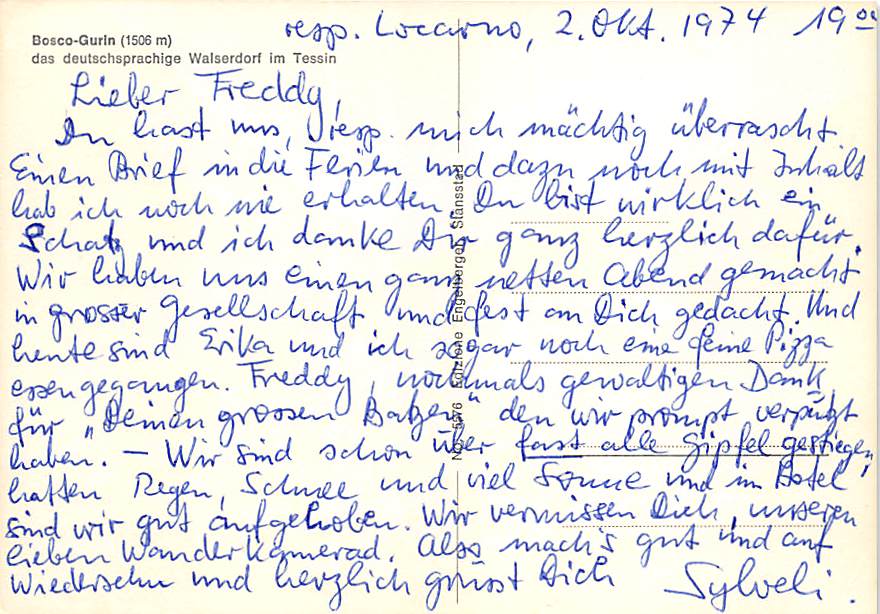 Bosco-Gurin (1506 m)
das deutschsprachige Walserdorf im Tessin
resp. Locarno, 2. Okt. 1974 19 00
Lieber Freddy,
Du hast uns, resp. mich mächtig überrascht.
Einen Brief in die Ferien und dazu noch mit Inhalt
hab ich noch nie erhalten. Du bist wirklich ein
Schatz und ich danke Dir ganz herzlich dafür.
Wir haben uns einen ganz netten Abend gemacht
in grosser Gesellschaft und fest an Dich gedacht. Und
heute sind Erika und ich sogar noch eine feine Pizza
essen gegangen. Freddy, nochmals gewaltigen Dank
für „Deinen grossen Batzen" den wir prompt verputzt
haben. – Wir sind schon über fast alle Gipfel gestiegen,
hatten Regen, Schnee und viel Sonne und im Hotel
sind wir gut aufgehoben. Wir vermissen Dich, unseren
lieben Wanderkamerad. Also mach's gut und auf
Wiedersehn und herzlich grüsst Dich Sylveli.
Edizione Engelberger, Stansstad